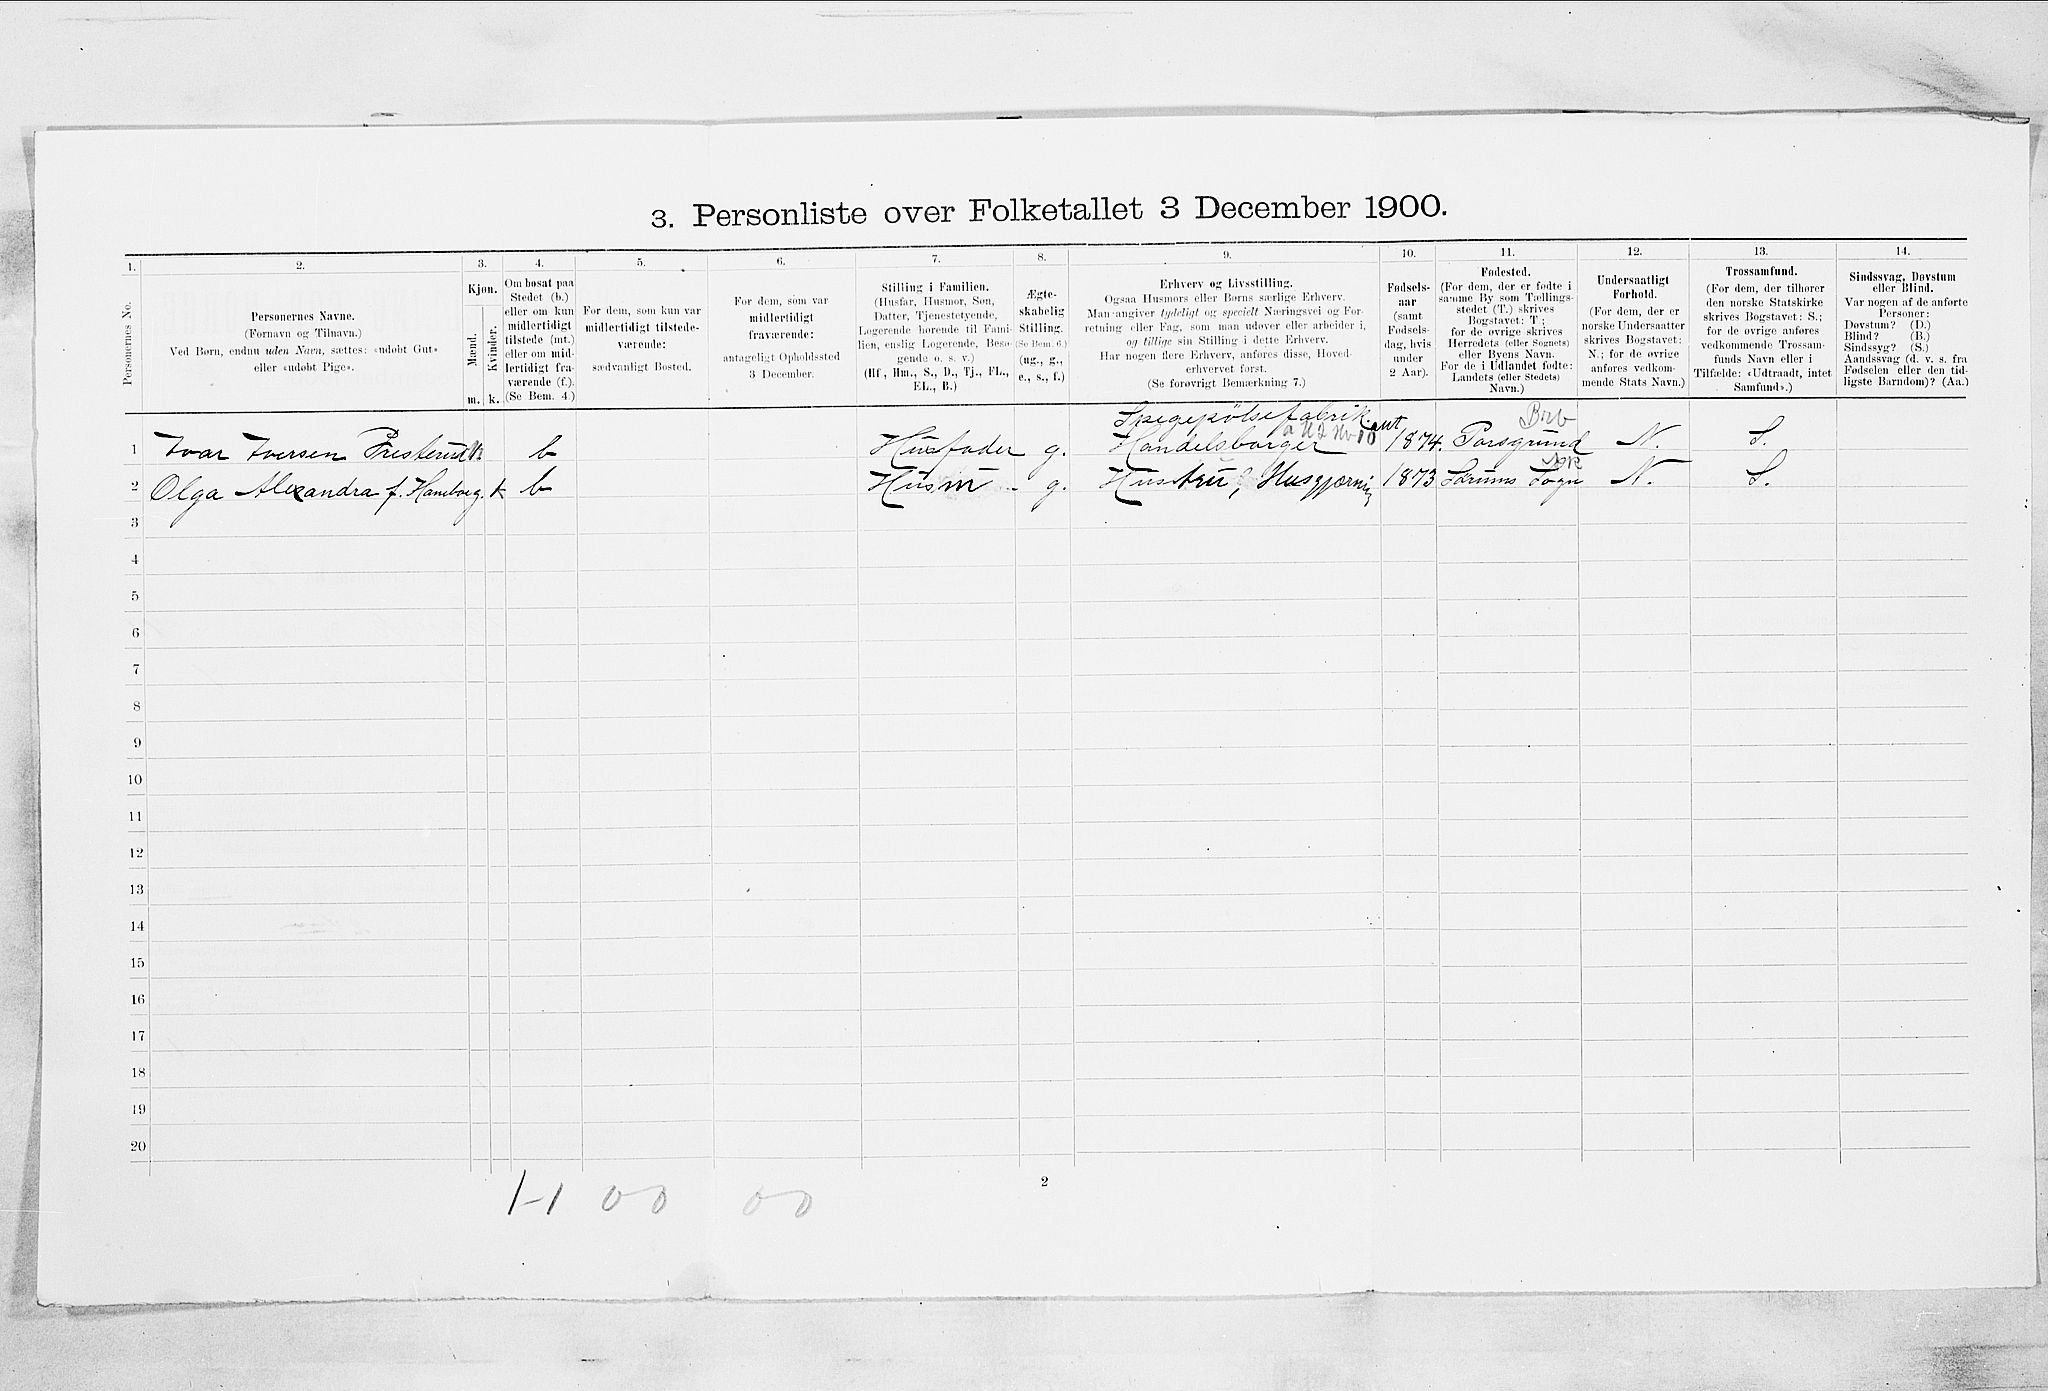 3. Personliste over Folketallet 3 December 1900.
1. 2. 3. 4. 5. 6. 7. 8. 9. 10. 11. 12. 13. 14.
Personernes No.
Personernes Navne.
(Fornavn og Tilnavn.)
Ved Børn, endnu uden Navn, sættes: «udøbt Gut»
eller «udøbt Pige».
Kjøn.
Mænd.
Kvinder.
m. k.
Om bosat paa
Stedet (b.)
eller om kun
midlertidigt
tilstede (mt.)
eller om mid-
lertidigt fra-
værende (f.).
(Se Bem. 4.)
For dem, som kun var
midlertidigt tilstede-
værende:
sædvanligt Bosted.
For dem, som var
midlertidigt
fraværende:
antageligt Opholdssted
3 December.
Stilling i Familien.
(Husfar, Husmor, Søn,
Datter, Tjenestetyende,
Logerende hørende til Fami-
lien, enslig Logerende, Besø-
gende o. s. v.)
(Hf., Hm., S., D., Tj., FL.,
EL., B.)
Ægte-
skabelig
Stilling.
(Se Bem. 6.)
(ug., g.,
e., s., f.)
Erhverv og Livsstilling.
Ogsaa Husmors eller Børns særlige Erhverv.
Man angiver tydeligt og specielt Næringsvei og For-
retning eller Fag, som man udøver eller arbeider i,
og tillige sin Stilling i dette Erhverv.
Har nogen flere Erhverv, anføres disse, Hoved-
erhvervet først.
(Se forøvrigt Bemærkning 7.)
Fødsels-
aar
(samt
Fødsels-
dag, hvis
under
2 Aar).
Fødested.
(For dem, der er fødte i
samme By som Tællings-
stedet (T.) skrives
Bogstavet: T;
for de øvrige skrives
Herredets (eller Sognets)
eller Byens Navn.
For de i Udlandet fødte:
Landets (eller Stedets)
Navn.)
Undersaatligt
Forhold.
(For dem, der er
norske Undersaatter
skrives Bogstavet:
N.; for de øvrige
anføres vedkom-
mende Stats Navn.)
Trossamfund.
(For dem, der tilhører
den norske Statskirke
skrives Bogstavet: S.;
for de øvrige anføres
vedkommende Trossam-
funds Navn eller i
Tilfælde: «Udtraadt, intet
Samfund».)
Sindssvag, Døvstum
eller Blind.
Var nogen af de anførte
Personer:
Døvstum? (D.)
Blind? (B.)
Sindssyg? (S.)
Aandssvag (d. v. s. fra
Fødselen eller den tid-
ligste Barndom)? (Aa.)
Spegepölsefabrikant
1 Ivar Iversen Presterud b Husfader g. Handelsborger 1874. Porsgrund N. S.
2 Olga Alexandra f. k b Husm - g. Hustru, Husgjerning 1873 Sørums Sogn N. S.
3
4
5
6
7
8
9
10
11
12
13
14
15
16
17
18
19
20
1-1 00 00
2